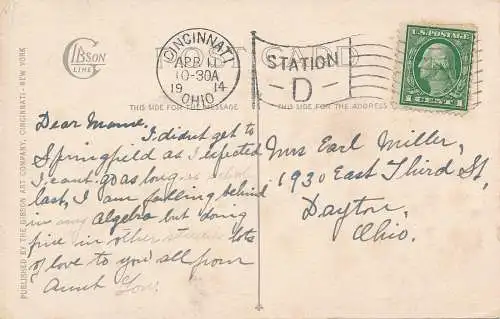 GIBSON
LINE
POST CARD
CINCINNATI
APR 11
10-30A
19 14
OHIO
STATION
D
U.S. POSTAGE
THIS SIDE FOR THE MESSAGE
THIS SIDE FOR THE ADDRESS
PUBLISHED BY THE GIBSON ART COMPANY, CINCINNATI - NEW YORK
Dear Mame,
I didnt get to
Springfield as I expected
I cant go as long as school
last, I am falling behind
in my algebra but doing
fine in other studies lots
of love to you all from
Aunt
Mrs Earl Miller,
1930 East Third St,
Dayton,
Ohio.